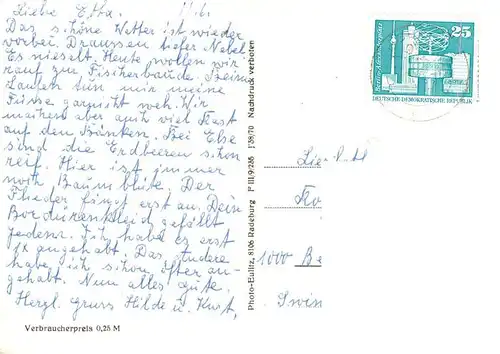 Liebe Erna. 11.6.
Das schöne Wetter ist wieder
vorbei. Draussen tiefer Nebel
Es nieselt. Heute wollen wir
rauf zur Fischerbaude. Beim
Laufen tun mir meine
Füsse garnicht weh. Wir
machen aber auch viel Rast
auf den Bänken. Bei Else
sind die Erdbeeren schon
reif. Hier ist immer
noch Baumblüte. Der
Flieder fängt erst an. Dein
Bordürenkleid gefällt
jedem. Ich habe es erst
1x angehabt. Das andere
habe ich schon öfter an-
gehabt. Nun alles gute.
Herzl. gruss Hilde u. Kurt,
Verbraucherpreis 0,25 M
Photo-Eulitz, 8106 Radeburg P III/9/286 J 38/70 Nachdruck verboten
25
Berlin, Alexanderplatz
DEUTSCHE DEMOKRATISCHE REPUBLIK
1000 Be